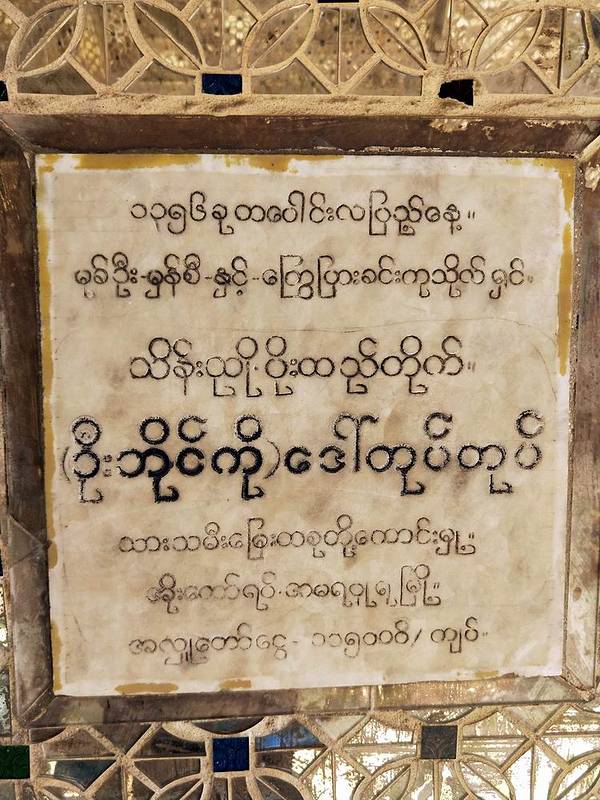 ၁၃၅၆ ခု တပေါင်းလပြည့်နေ့။
မုခ်ဦး-မှန်စီ-နှင့်-ကြွေပြားခင်းကုသိုလ်ရှင်။
သိန်းညို.ပိုးထည်တိုက်။
(ဦးဘိုင်ကို)ဒေါ်တုပ်တုပ်
သားသမီးမြေးတစုတို့ကောင်းမှု။
အိုးတော်ရပ်.အမရပူရမြို့။
အလှူတော်ငွေ- ၁၁၅၀၀ိ/ ကျပ်။